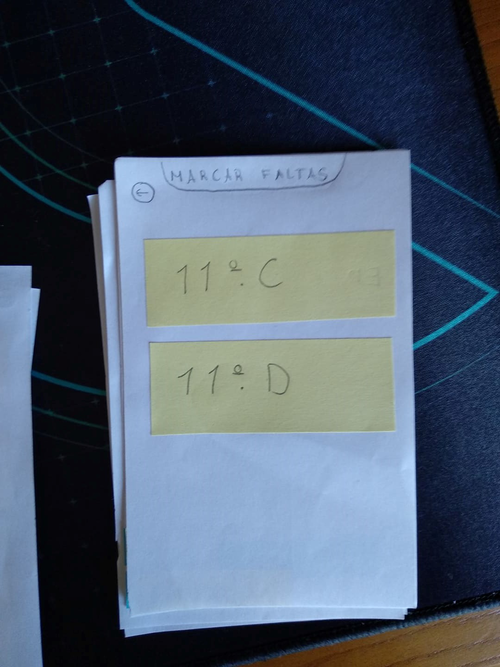 MARCAR FALTAS
11º. C
11º. D